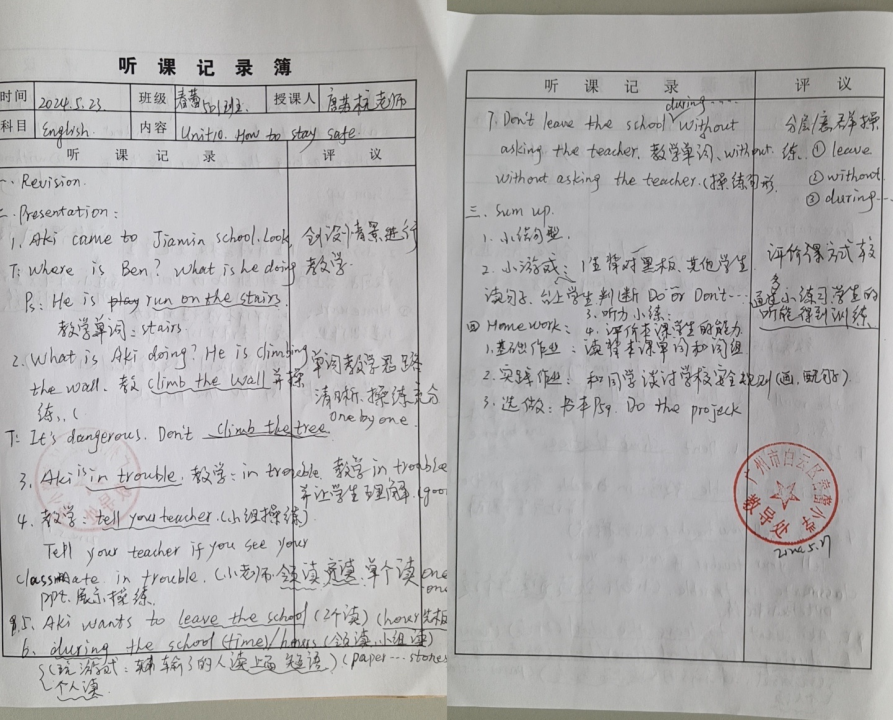 听课记录簿
时间 2024.5.23. 班级 501班 授课人 老师
科目 English. 内容 Unit10. How to stay safe
听课记录 评议
一. Revision.
二. Presentation:
1. Aki came to Jiamin school. Look, 创设情景进行
T: Where is Ben? What is he doing 教学
Ps: He is run on the stairs.
教学单词: stairs
2. What is Aki doing? He is climbing 单词教学思路
the wall. 教 climb the wall 并操 清晰. 操练充分
练.. one by one.
T: It's dangerous. Don't climb the tree.
3. Aki is in trouble. 教学: in trouble. 教学 in trouble
并让学生理解.
4. 教学: tell your teacher. (小组操练)
Tell your teacher if you see your
classmate in trouble. (小老师领读, 单个读 one
ppt. 展示操练.
5. Aki wants to leave the school (2个读)
6. during the school (time)/hours (领读. 小组读)
(玩游戏: 输了的人读上面 短语) (paper... stones
个人读.
听课记录 评议
during....
7. Don't leave the school without 分层
asking the teacher. 教学单词. without. 练. ① leave
without asking the teacher. (操练句形 ② without
③ during...
三. Sum up.
1. 小结句型.
2. 小游戏: 1生背对黑板. 其他学生 评价课方式较多
读句子. 台上学生判断 Do or Don't... 通过小练习学生的
3. 听力小练: 听能得到训练
四 Homework: 4. 评价本课学生的能力
1. 基础作业: 读背本课单词和词组
2. 实践作业: 和同学谈讨学校安全规则 (画. 配句子)
3. 选做: 书本P59. Do the project
广州市白云区小学
教导处